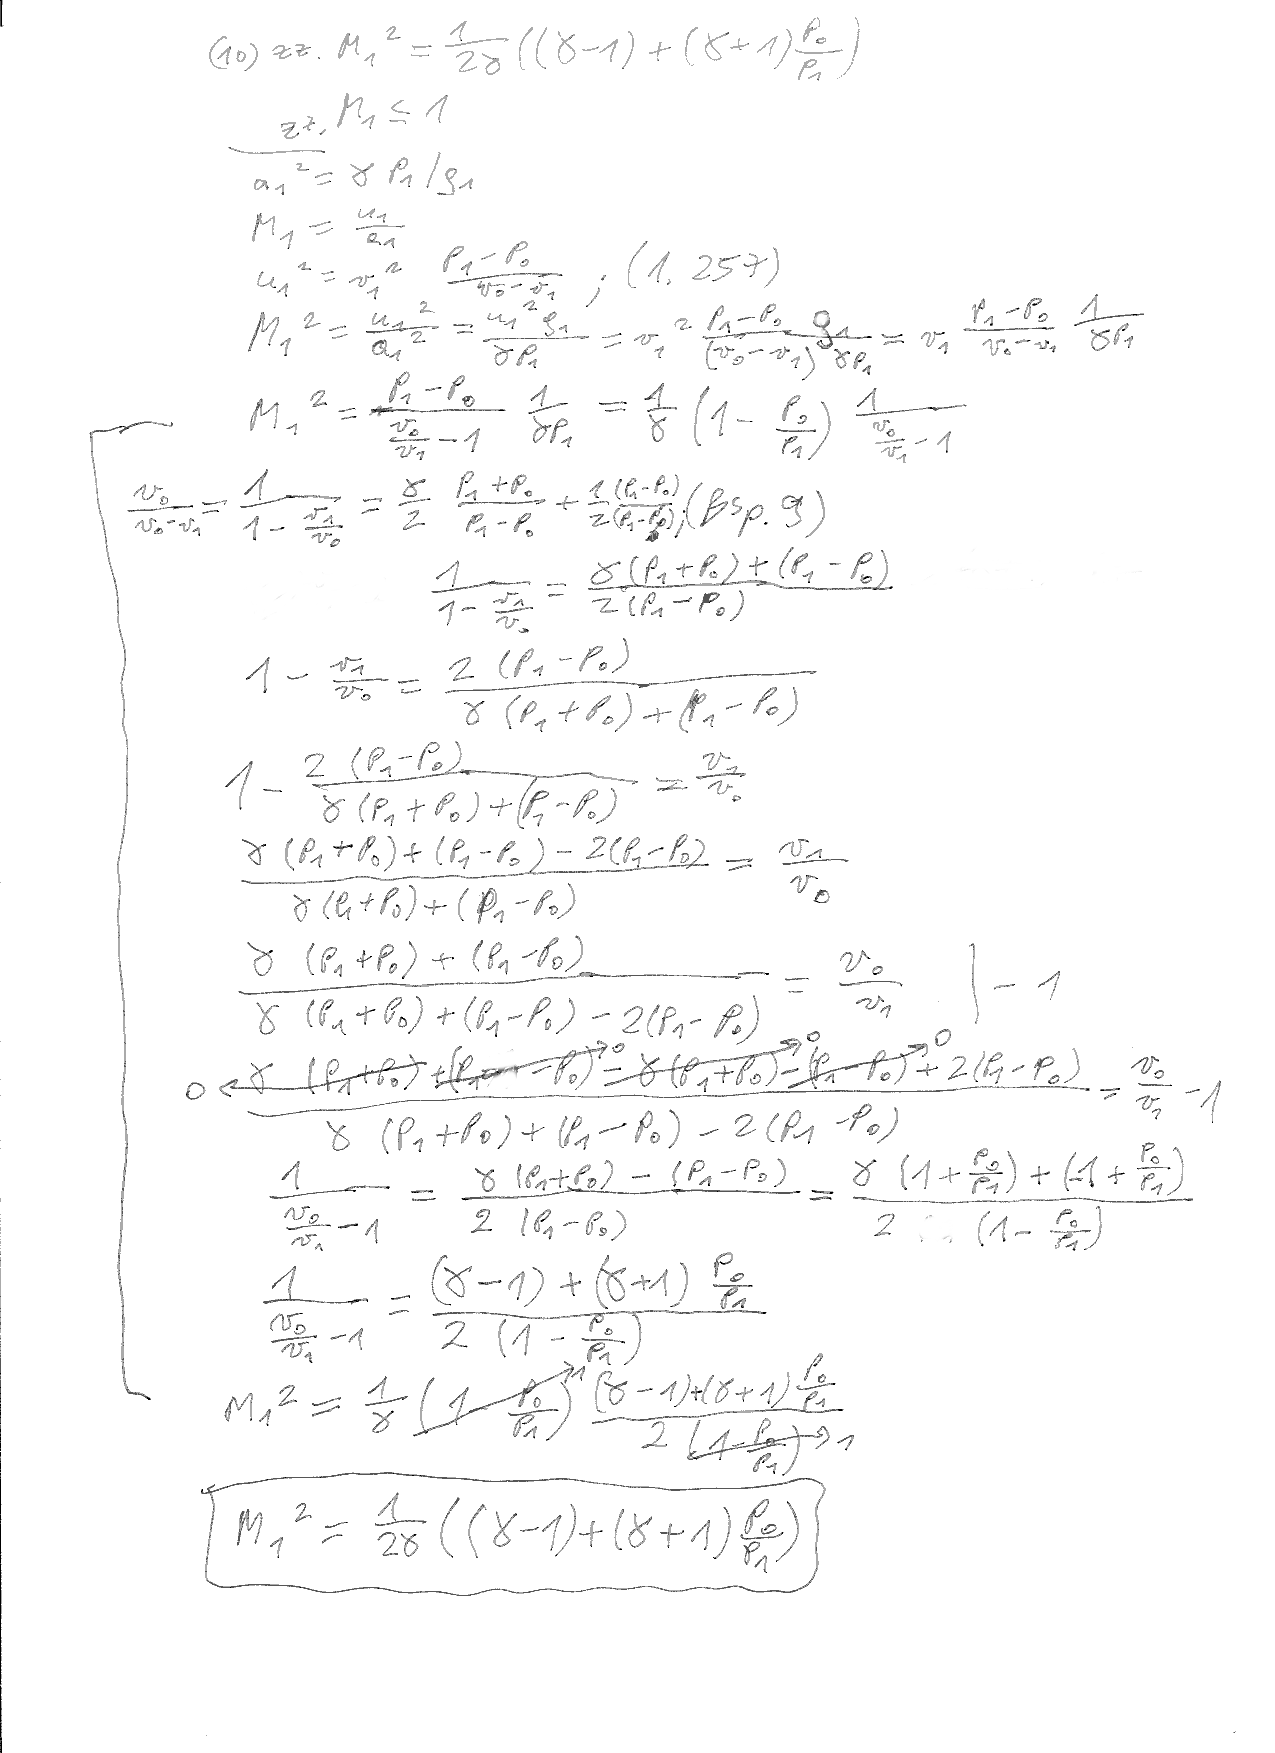 (10) zz. M₁² = 1/(2γ) ((γ-1) + (γ+1) P₀/P₁)
zz. M₁ ≤ 1
a₁² = γ P₁/ρ₁
M₁ = u₁/a₁
u₁² = v₁² (P₁-P₀)/(v₀-v₁) ; (1.257)
M₁² = u₁²/a₁² = u₁²ρ₁/(γP₁) = v₁² (P₁-P₀)/(v₀-v₁) ρ₁/(γP₁) = v₁ (P₁-P₀)/(v₀-v₁) 1/(γP₁)
M₁² = (P₁-P₀)/(v₀/v₁ - 1) 1/(γP₁) = 1/γ (1 - P₀/P₁) 1/(v₀/v₁ - 1)
v₀/(v₀-v₁) = 1/(1 - v₁/v₀) = γ/2 (P₁+P₀)/(P₁-P₀) + 1/2 (P₁-P₀)/(P₁-P₀) ; (Bsp. 9)
1/(1 - v₁/v₀) = (γ(P₁+P₀) + (P₁-P₀))/(2(P₁-P₀))
1 - v₁/v₀ = 2(P₁-P₀)/(γ(P₁+P₀) + (P₁-P₀))
1 - 2(P₁-P₀)/(γ(P₁+P₀) + (P₁-P₀)) = v₁/v₀
(γ(P₁+P₀) + (P₁-P₀) - 2(P₁-P₀))/(γ(P₁+P₀) + (P₁-P₀)) = v₁/v₀
(γ(P₁+P₀) + (P₁-P₀))/(γ(P₁+P₀) + (P₁-P₀) - 2(P₁-P₀)) = v₀/v₁ | -1
0 ← (γ(P₁+P₀) + (P₁-P₀) →0 - γ(P₁+P₀) →0 - (P₁-P₀) →0 + 2(P₁-P₀))/(γ(P₁+P₀) + (P₁-P₀) - 2(P₁-P₀)) = v₀/v₁ - 1
1/(v₀/v₁ - 1) = (γ(P₁+P₀) - (P₁-P₀))/(2(P₁-P₀)) = (γ(1+P₀/P₁) + (-1+P₀/P₁))/(2(1-P₀/P₁))
1/(v₀/v₁ - 1) = ((γ-1) + (γ+1) P₀/P₁)/(2(1-P₀/P₁))
M₁² = 1/γ (1 - P₀/P₁) →1 ((γ-1)+(γ+1) P₀/P₁)/(2(1-P₀/P₁) →1)
M₁² = 1/(2γ) ((γ-1)+(γ+1) P₀/P₁)